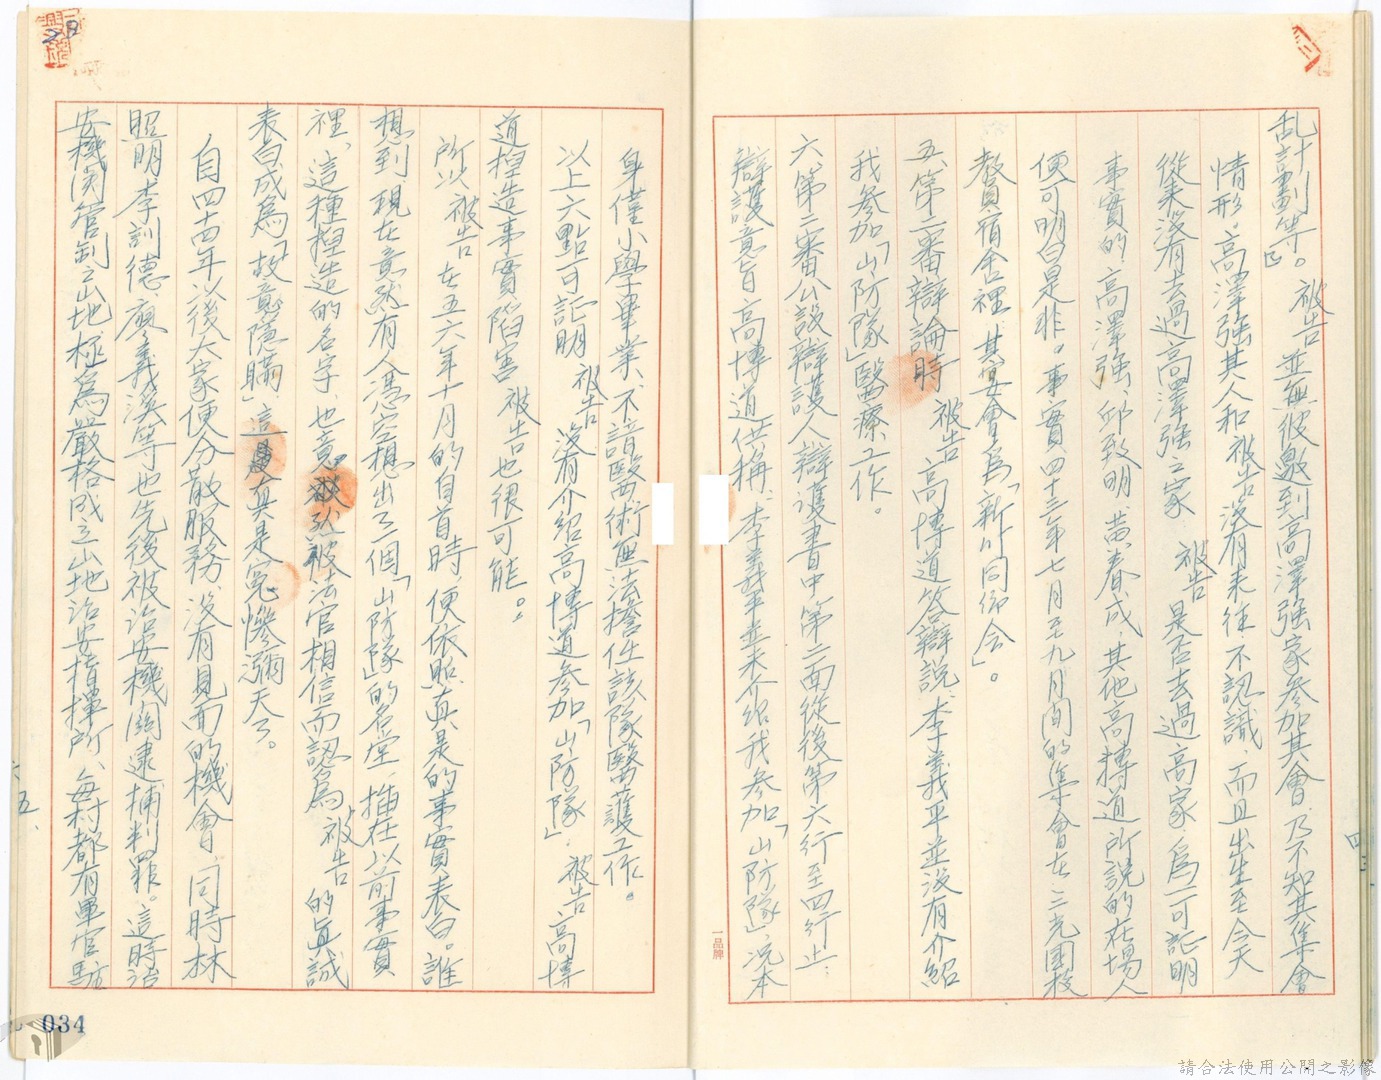 乱計劃等』。被告並無被邀到高澤强家參加其會，乃不知其集會
情形。高澤强其人和被告沒有来往不認識，而且出生至今天
從来沒有去過高澤强之家，被告是否去過高家，為一可証明
事實的高澤强、邱致明、黄春成，其他高搏道所說的在場人
便可明白是非。事實四十三年七月至九月间的集會在三光國校
教員宿舍裡，其宴會為「新川同仰会」。
五、第二審辯論時被告高博道答辯說：李義平並沒有介紹
我參加「山防隊」醫療工作。
六、第二審公設辯護人辯護書中第二面從後第六行至四行止：
辯護意旨高博道供稱：李義平並未介绍我參加「山防隊」况本
身僅小學畢業，不諳醫術無法擔任該隊醫護工作。
以上六點可証明被告沒有介紹高博道參加「山防隊」，被告高博
道捏造事實陷害被告也很可能。。
所以被告在五六年十月的自首時，便依照真是的事實表白。誰
想到現在竟然有人憑空想出了個「山防隊」的名堂，插在以前事實
裡，這種捏造的名字，也竟然被法官相信而認為被告的真誠
表白成為「故意隱瞒」，這真是冤慘瀰天了。
自四十四年以後大家便分散服務，沒有見面的機會，同時林
照明、李訓德、廖義溪等也先後被治安機關逮捕判罪。這時治
安機関管制之山地，極為嚴格成立山地治安指揮所、每村都有軍官駐
一品牌
28
034
五、
請合法使用公開之影像